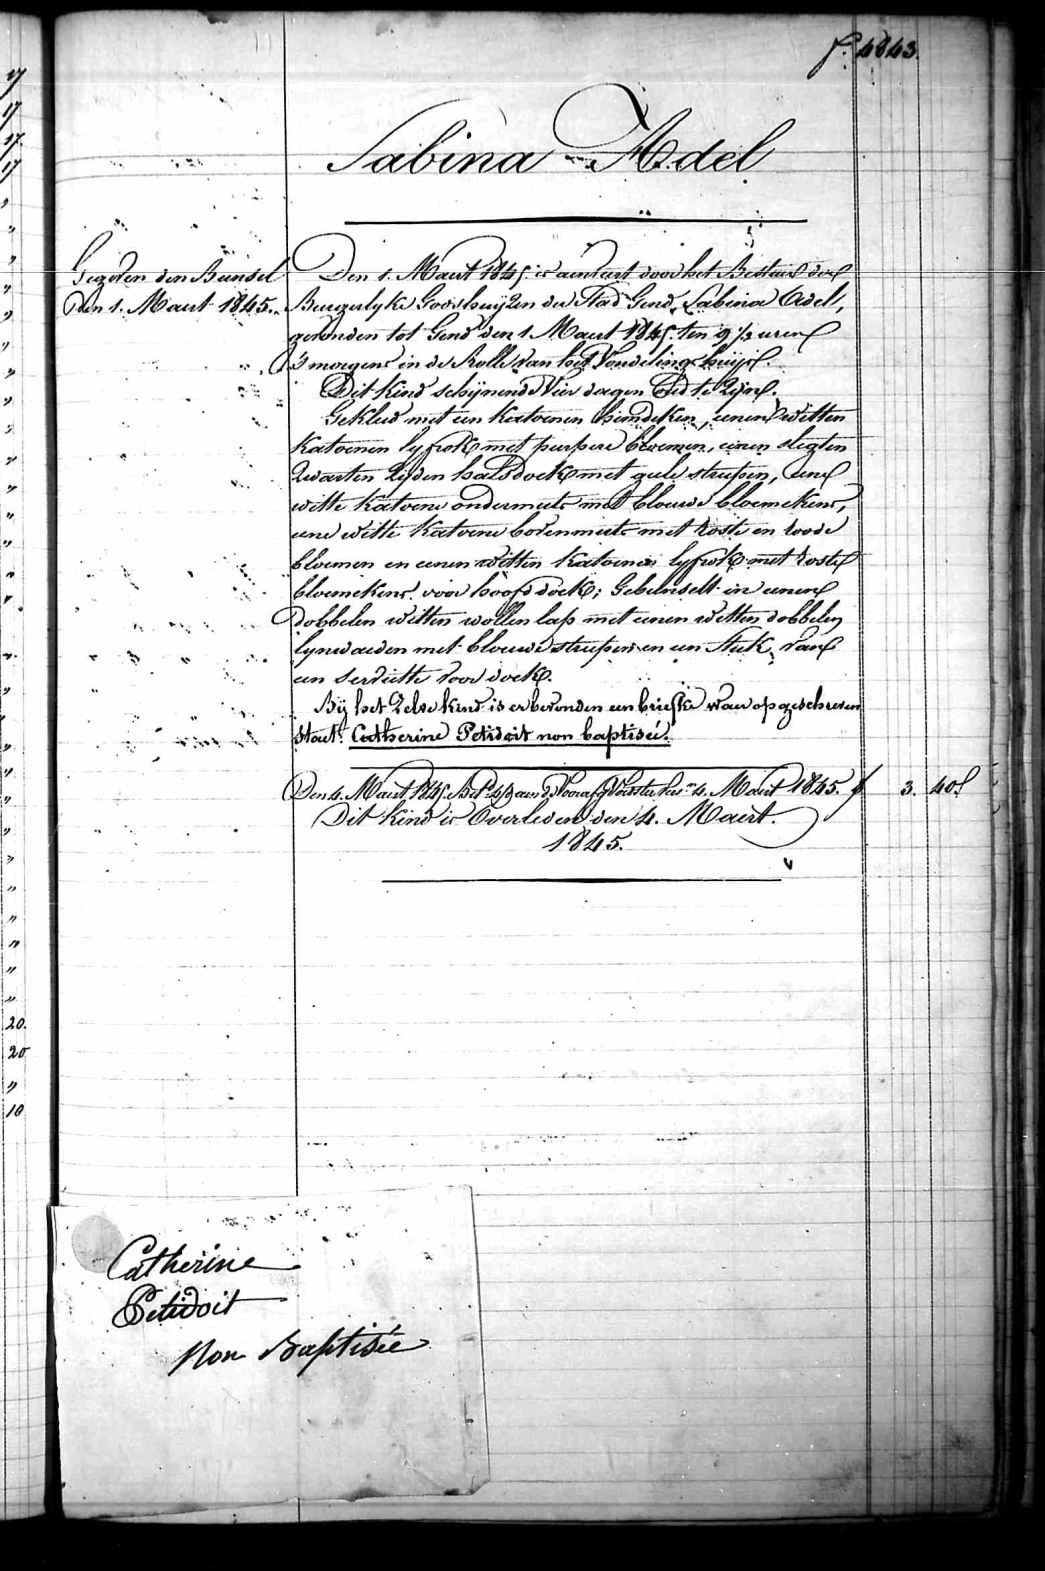 f. 4843.
Sabina Adel
Gezien den Bundel
den 1. Maart 1845.
Den 1. Maart 1845. is aenveert door het Bestuur der
Burgerlyke Godshuijzen der Stad Gend, Sabina Adel,
gevonden tot Gend den 1 Maart 1845. ten 9 1/2 uren
's morgens in de Rolle van het Vondelingshuijs.
Dit kind schijnende vier dagen oud te zijn.
Gekleed met een katoenen hemdeken, eenen witten
katoenen lyfrok met purpere bloemen, eenen slegten
zwarten zijden halsdoek met gele streepen, eene
witte katoene ondermuts met blouwe bloemekens,
eene witte katoene bovenmuts met roste en roode
bloemen en eenen witten katoenen lyfrok met roste
bloemekens voor hoofddoek; Gebusselt in eenen
dobbelen witten wollen lap met eenen witten dobbelen
lynwaeden met blouwe streepen en een stuk van
een serviette voor doek.
Bij het zelve kind is er bevonden een briefke waer op geschreven
staet: Catherine Petidoit non baptiseé.
Den 4. Maart 1845. 4. Maart 1845. f 3. 40
Dit kind is Overleden den 4. Maert.
1845.
20.
20
10
Catherine
Petidoit
Non Baptisée